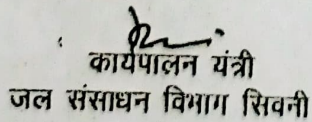 कार्यपालन यंत्री
जल संसाधन विभाग सिवनी